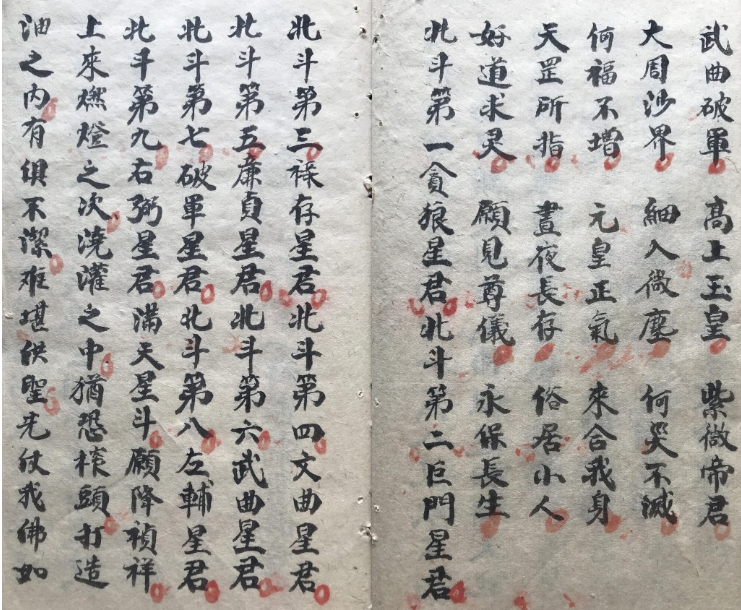 武曲破軍 高上玉皇 紫微帝君
大周沙界 細入微塵 何災不滅
何福不增 元皇正氣 來合我身
天罡所指 晝夜長存 俗居小人
好道求灵 願見尊儀 永保長生
北斗第一貪狼星君北斗第二巨門星君
北斗第三祿存星君北斗第四文曲星君
北斗第五廉貞星君北斗第六武曲星君
北斗第七破軍星君北斗第八左輔星君
北斗第九右弼星君滿天星斗願降禎祥
上來燃燈之次澆灌之中猶恐榨頭打造
油之內有俱不潔难堪供聖先仗我佛如